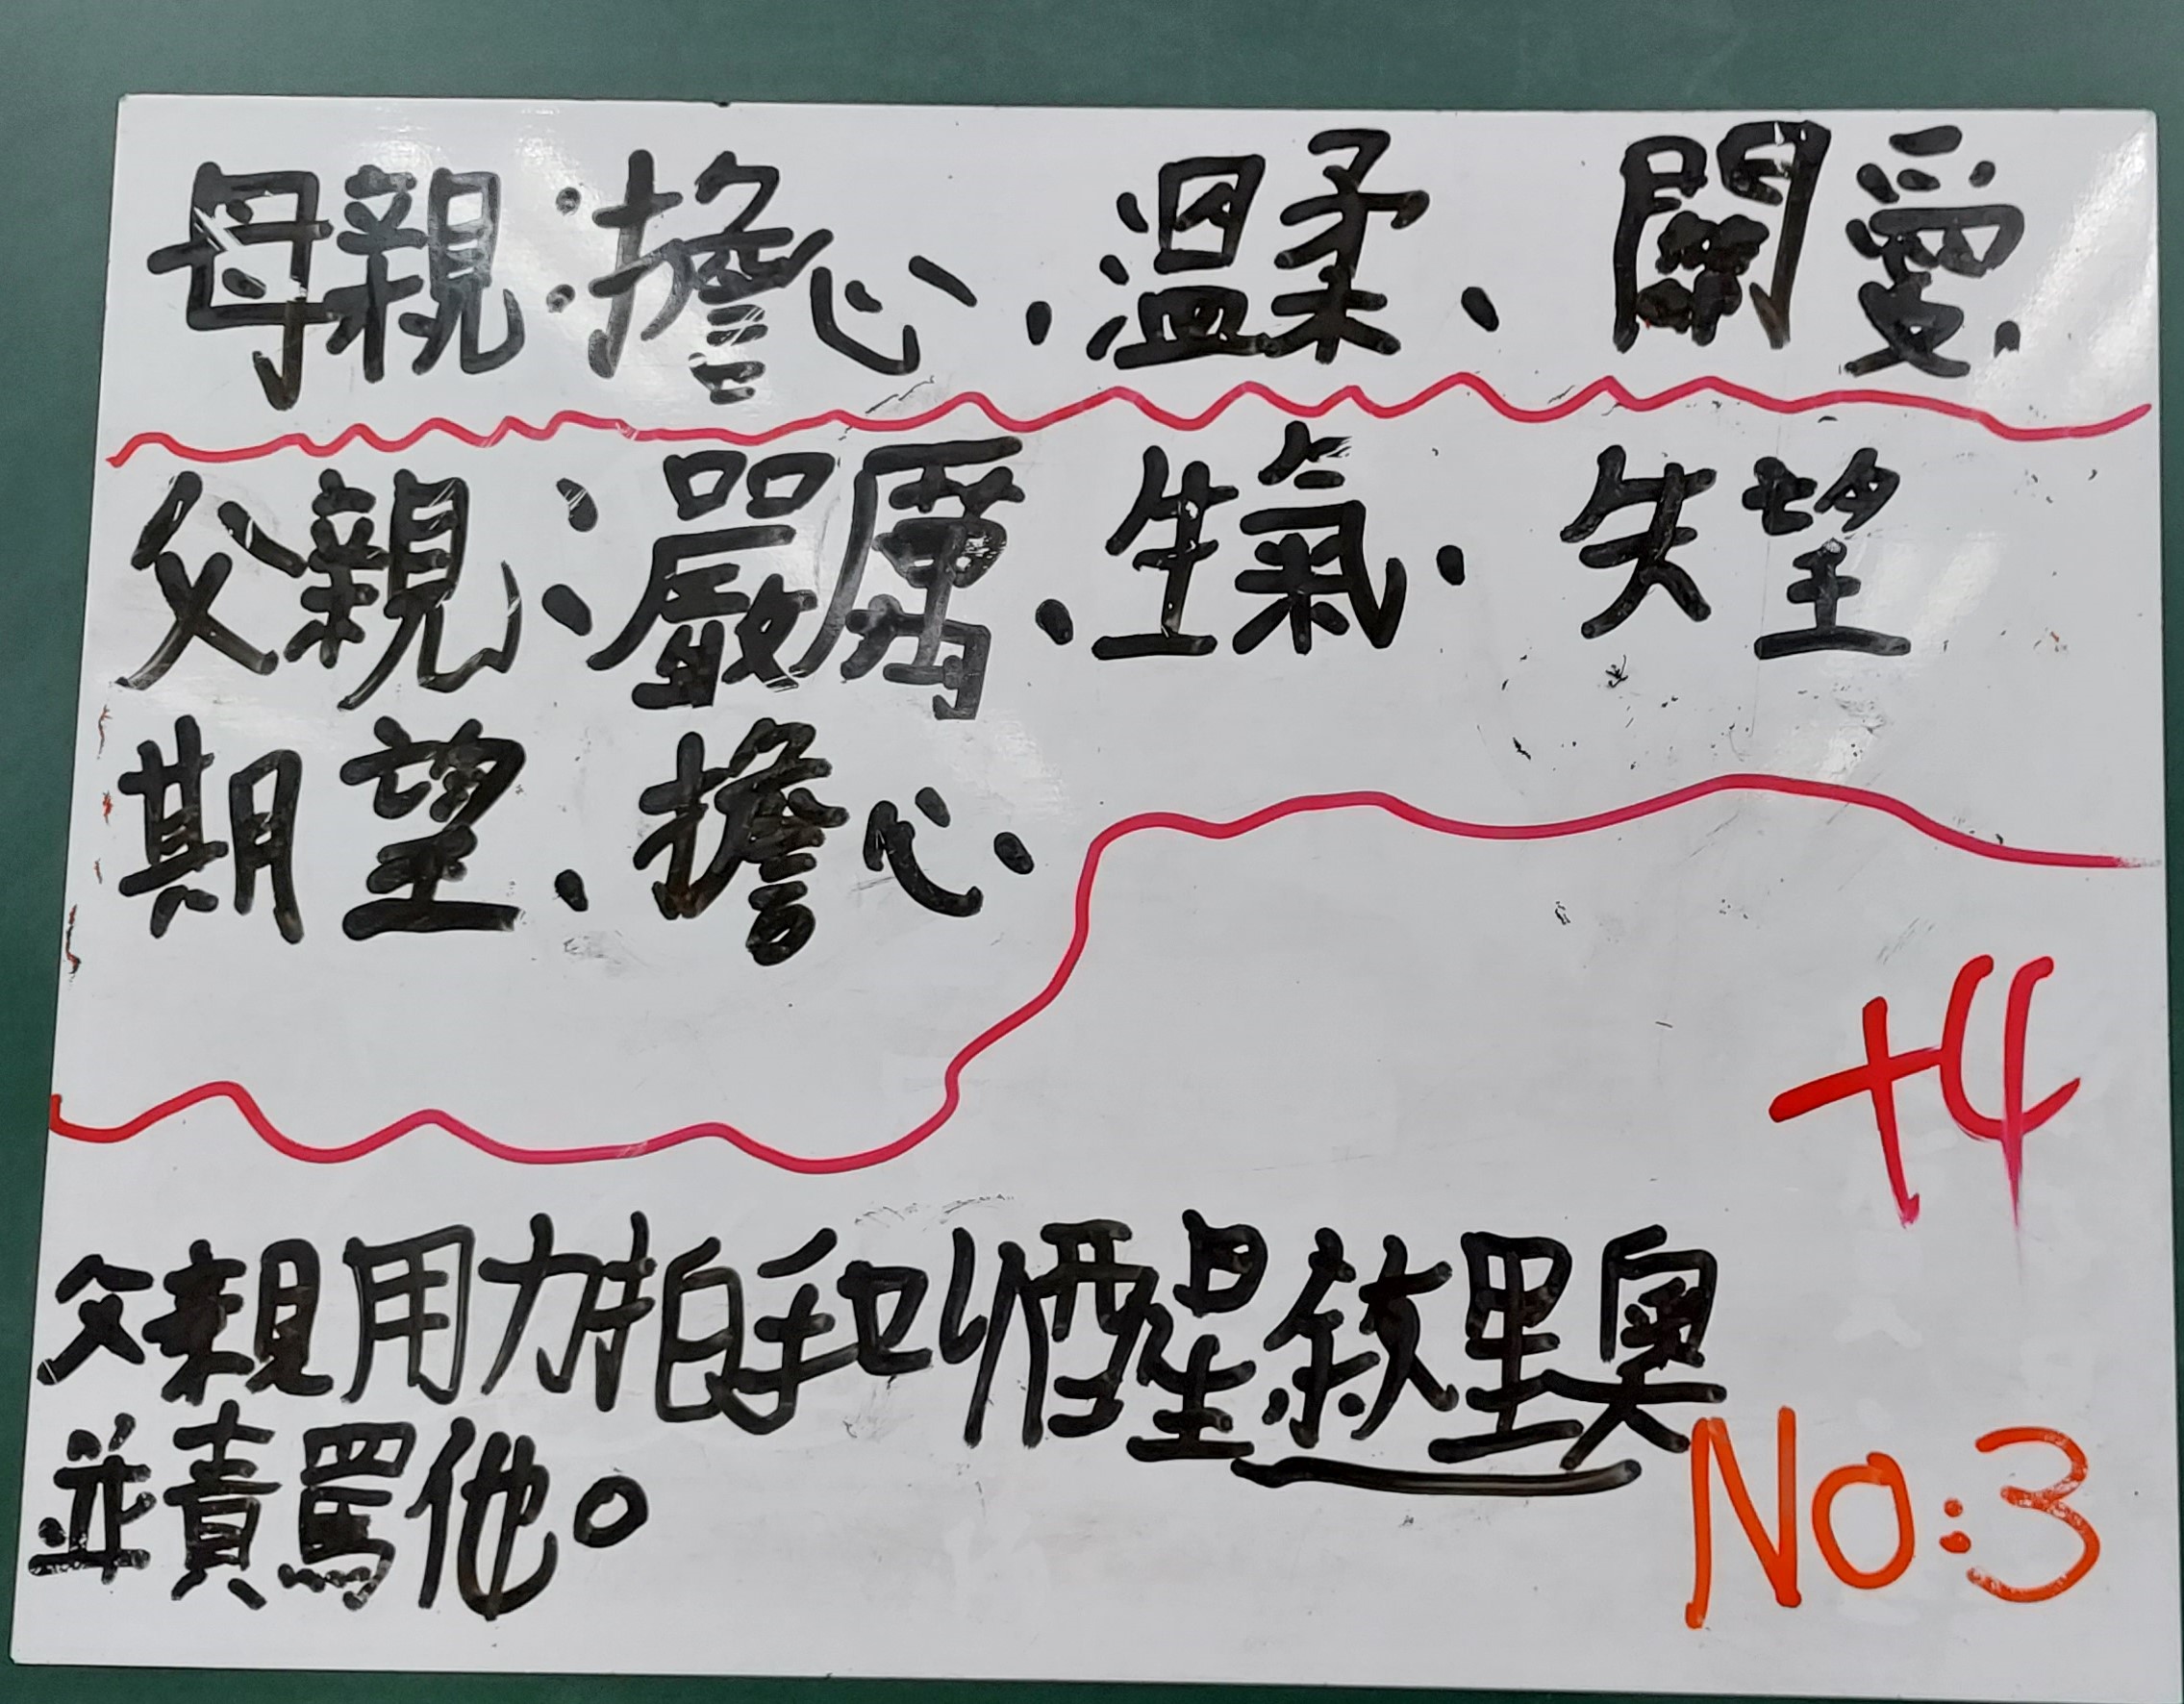 母親：擔心、溫柔、關愛.
父親：嚴厲、生氣、失望
期望、擔心、
+4
父親用力拍手把他叫醒敘里奧
並責罵他。
NO:3